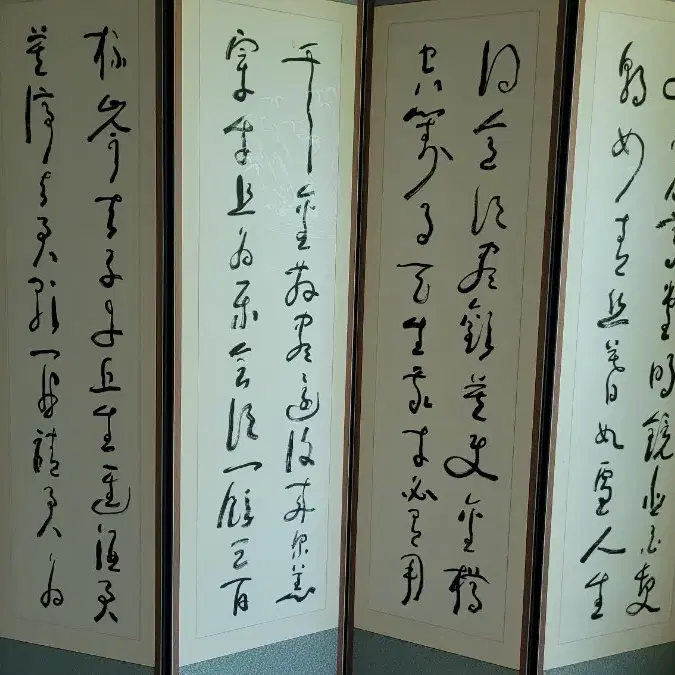 高堂明鏡悲白髮
朝如青絲暮如雪人生
得意須盡歡莫使金樽
空對月天生我材必有用
千金散盡還復來烹羔
宰牛且為樂會須一飲三百
杯岑夫子丹丘生進酒君
莫停與君歌一曲請君為